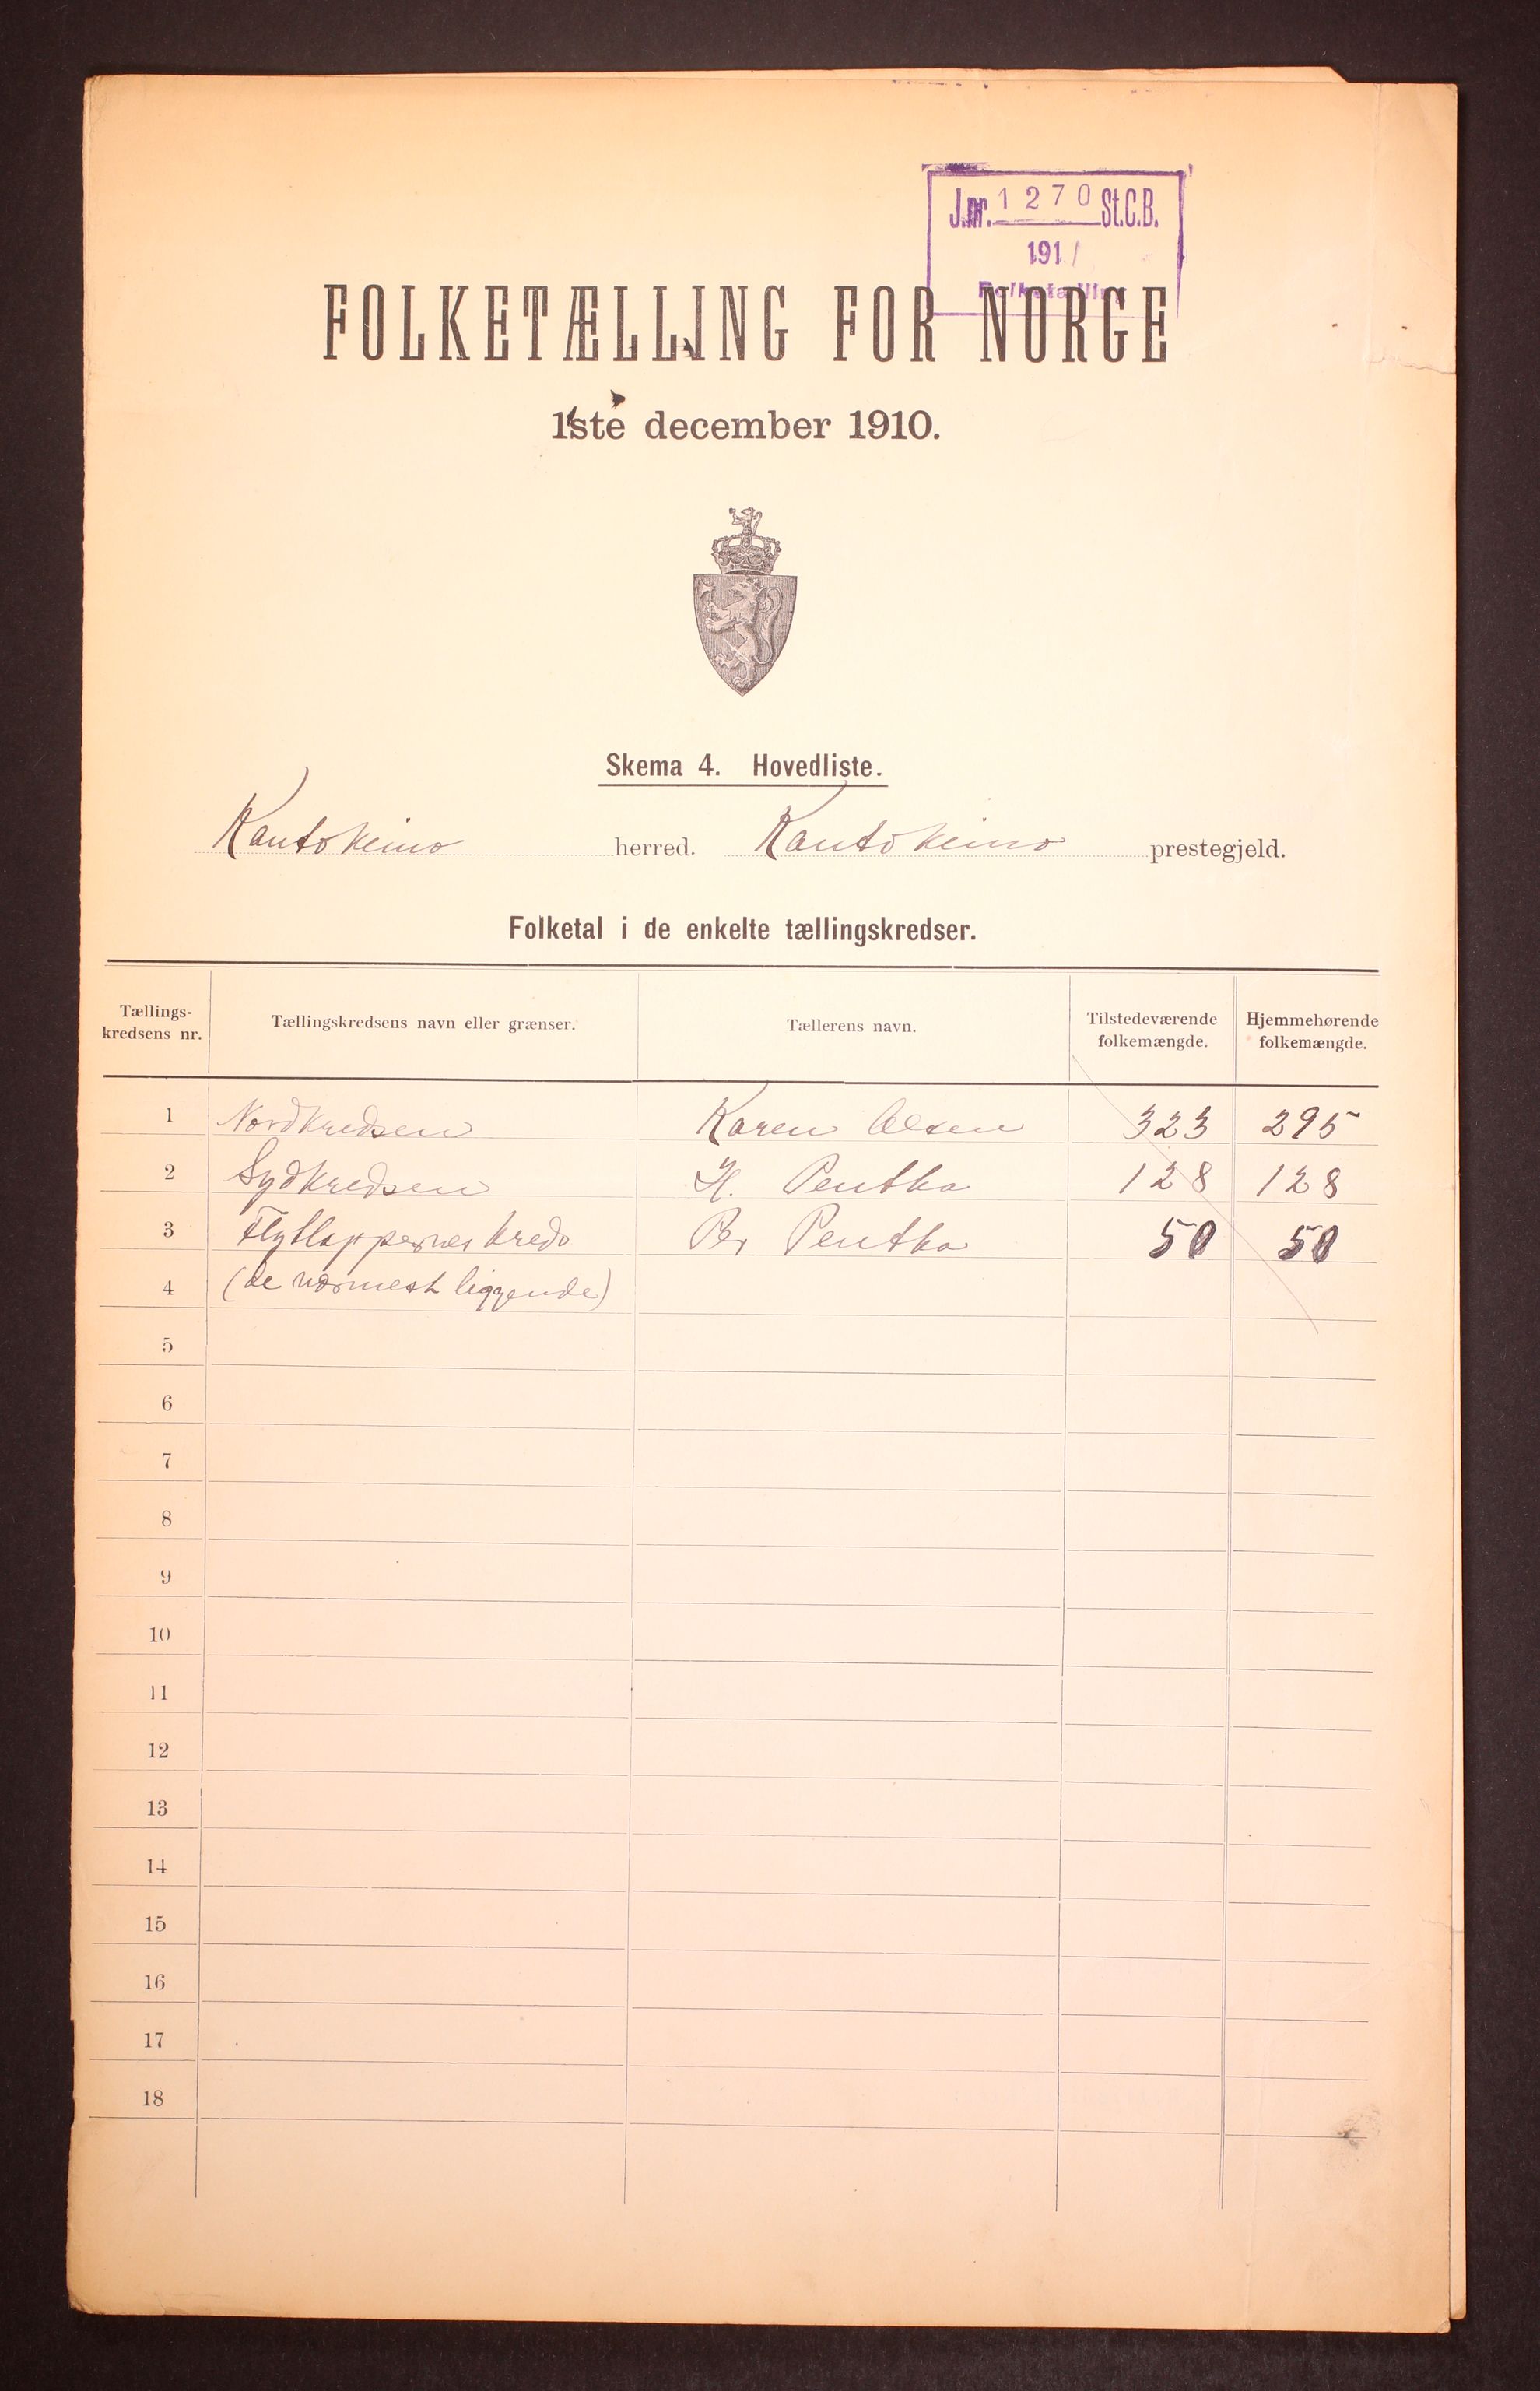 J.nr. 1270 St.C.B.
191/
Folketælling
FOLKETÆLLING FOR NORGE
1ste december 1910.
Skema 4. Hovedliste.
Kautokeino herred. Kautokeino prestegjeld.
Folketal i de enkelte tællingskredser.
Tællings-
kredsens nr.
Tællingskredsens navn eller grænser.
Tællerens navn.
Tilstedeværende
folkemængde.
Hjemmehørende
folkemængde.
1 Nordkredsen Karen Olsen 323 295
2 Sydkredsen H. Pentha 128 128
3 Flytlappernes kreds Br. Pentha 50 50
4 (de nærmest liggende)
5
6
7
8
9
10
11
12
13
14
15
16
17
18